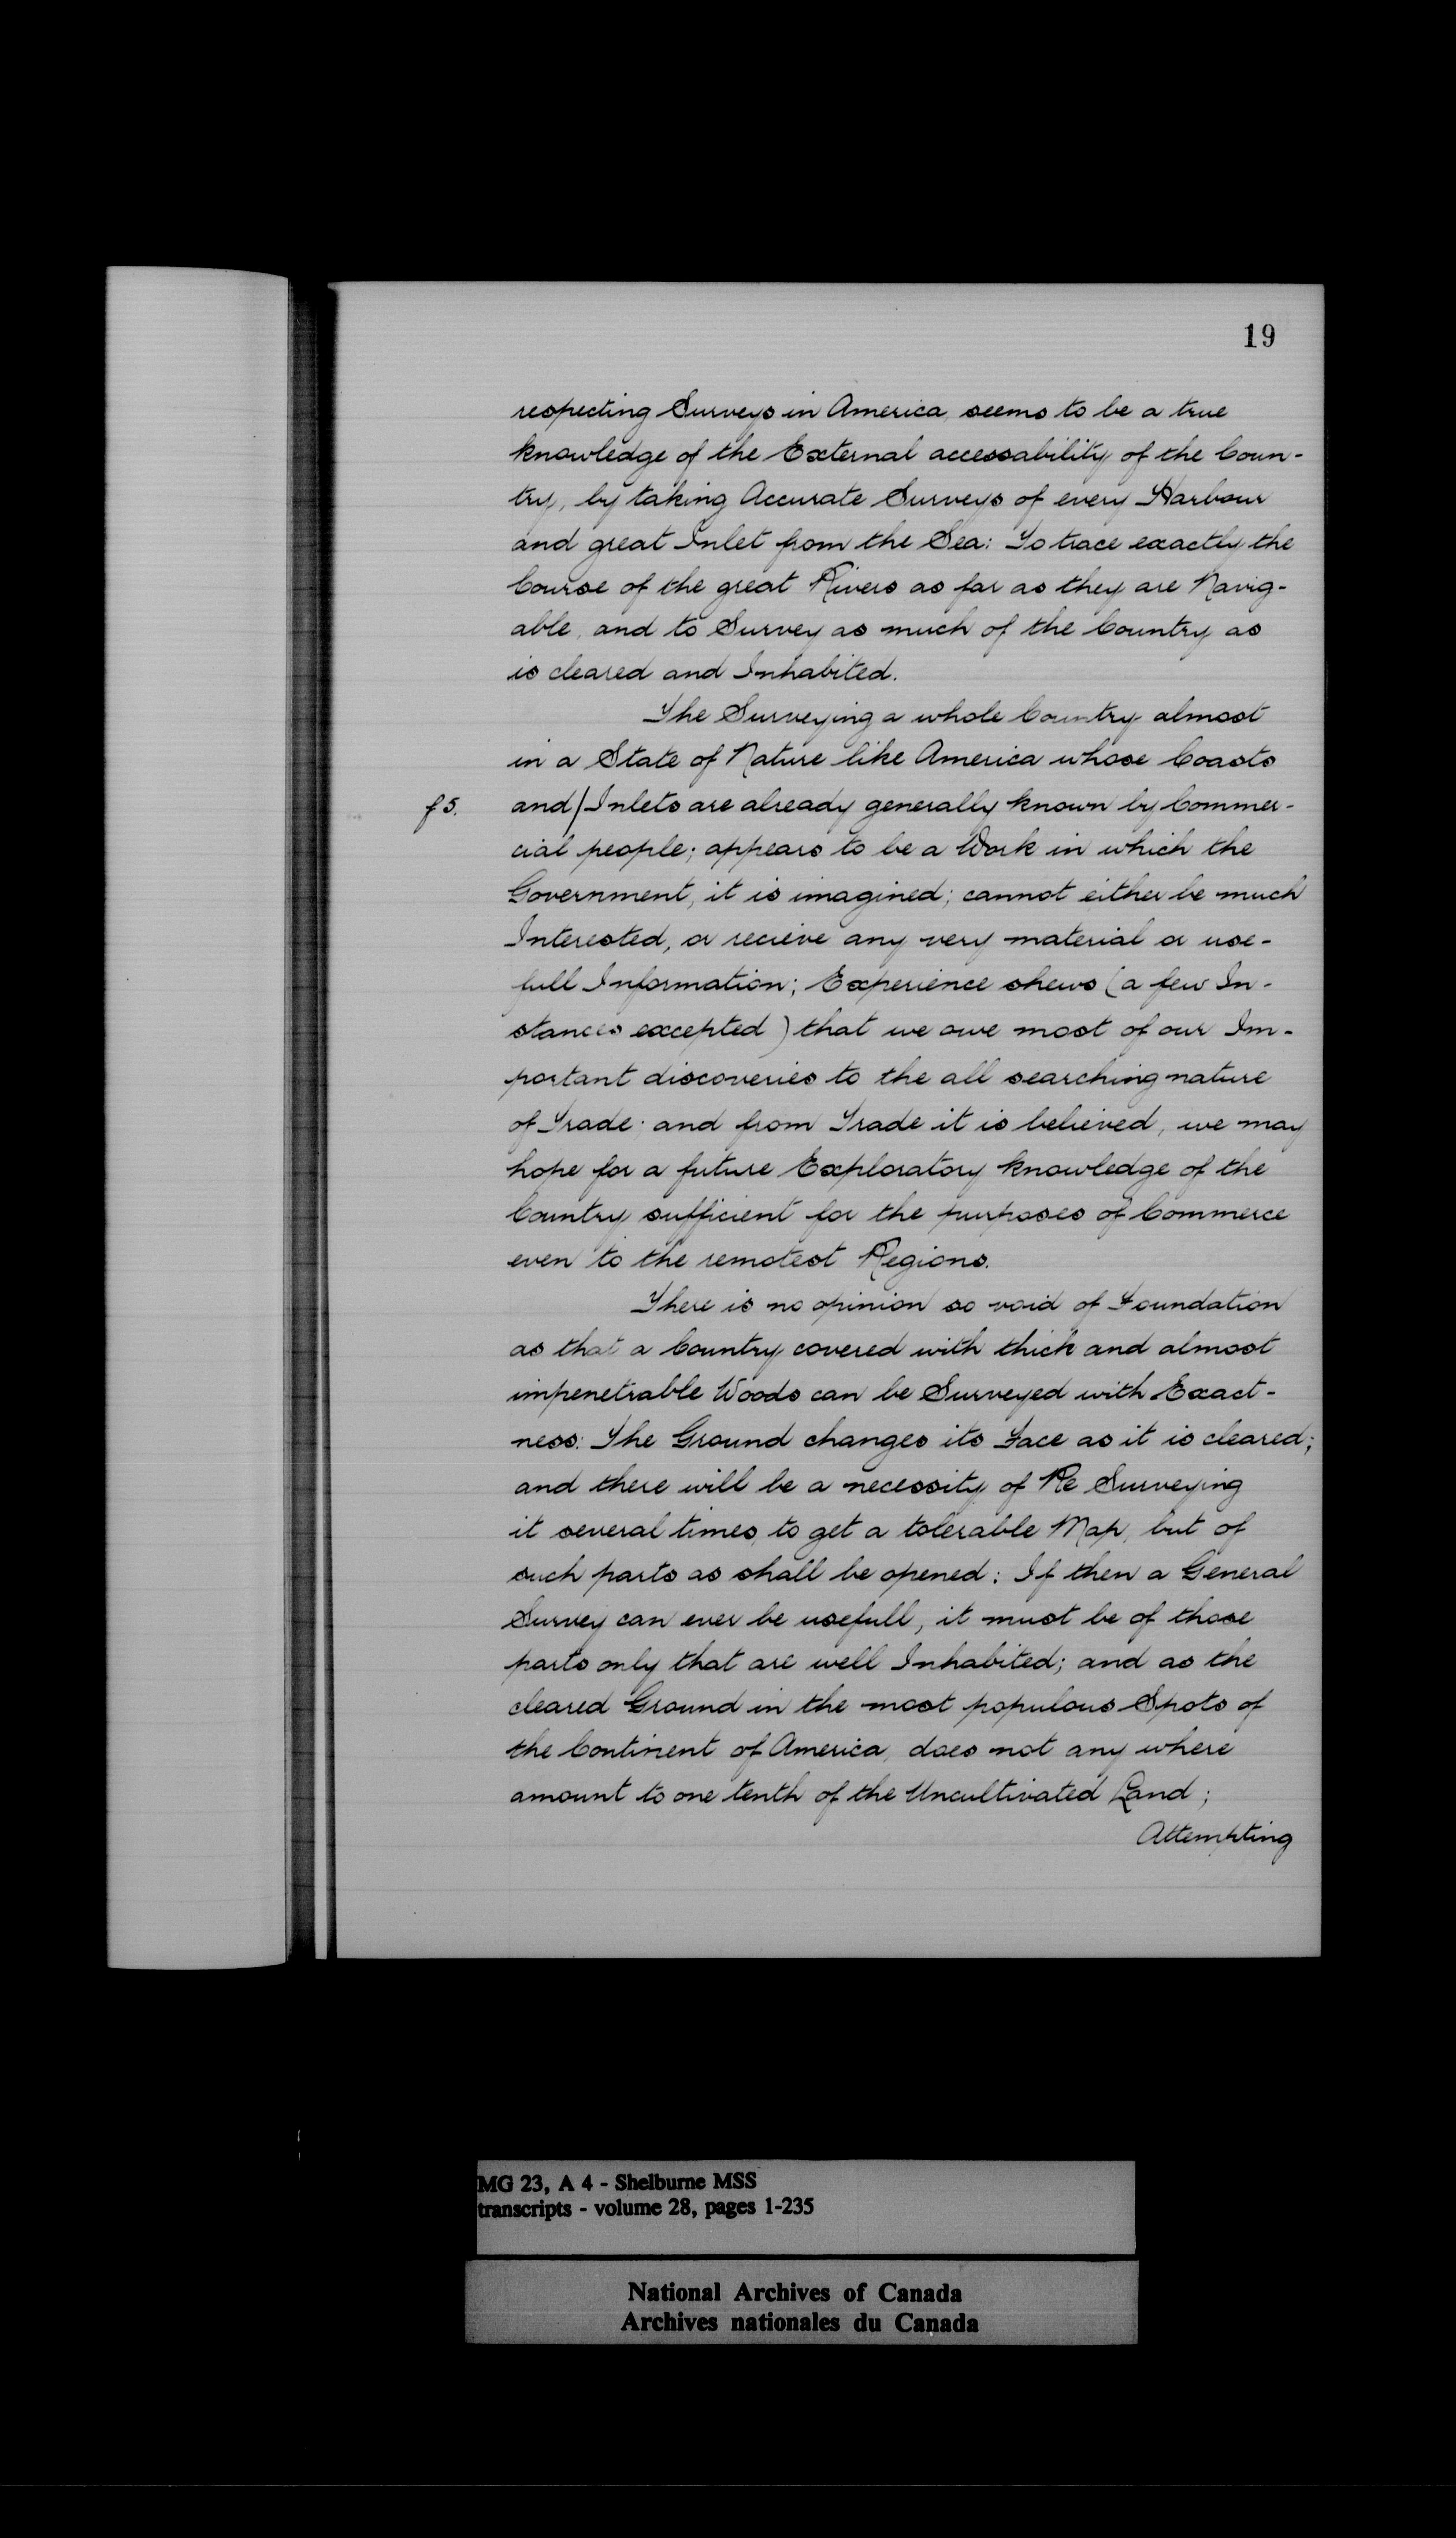 19
respecting Surveys in America, seems to be a true
knowledge of the External accessability of the Coun-
try, by taking Accurate Surveys of every Harbour
and great Inlet from the Sea: To trace exactly the
Course of the great Rivers as far as they are Navig-
able, and to Survey as much of the Country as
is cleared and Inhabited.
The Surveying a whole Country almost
in a State of Nature like America whose Coasts
f 5. and/Inlets are already generally known by Commer-
cial people; appears to be a Work in which the
Government, it is imagined; cannot either be much
Interested, or recieve any very material or use-
full Information; Experience shews (a few In-
stances excepted) that we owe most of our Im-
portant discoveries to the all searching nature
of Trade: and from Trade it is believed, we may
hope for a future Exploratory knowledge of the
Country sufficient for the purposes of Commerce
even to the remotest Regions.
There is no opinion so void of Foundation
as that a Country covered with thick and almost
impenetrable Woods can be Surveyed with Exact-
ness: The Ground changes its Face as it is cleared;
and there will be a necessity of Re Surveying
it several times, to get a tolerable Map, but of
such parts as shall be opened: If then a General
Survey can ever be usefull, it must be of those
parts only that are well Inhabited; and as the
cleared Ground in the most populous Spots of
the Continent of America, does not any where
amount to one tenth of the Uncultivated Land;
Attempting
MG 23, A 4 - Shelburne MSS
transcripts - volume 28, pages 1-235
National Archives of Canada
Archives nationales du Canada